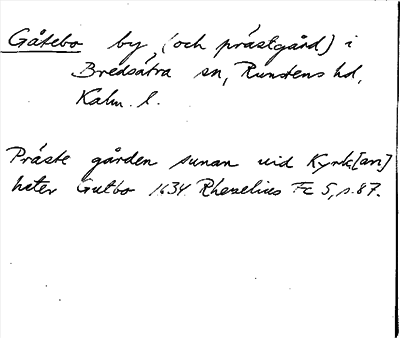 Gåtebo by, (och prästgård) i
Bredsätra sn, Runstens hd,
Kalm. l.
Präste gården sunan uid Kyrk[an]
heter Gutbo 1634. Rhezelius Fc 5, s. 87.